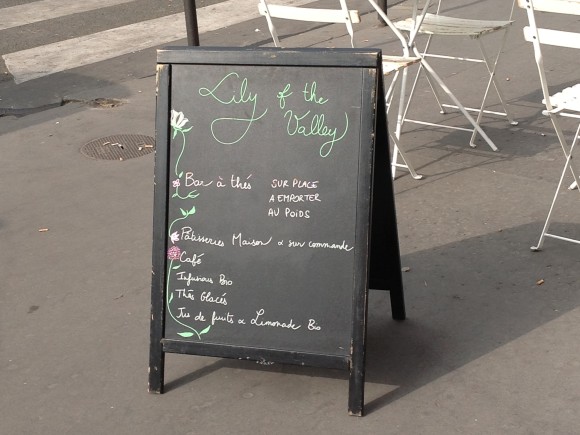 Lily of the
Valley
Bar à thés
SUR PLACE
A EMPORTER
AU POIDS
Pâtisseries Maison & sur commande
Café
Infusions Bio
Thés Glacés
Jus de fruits & Limonade Bio